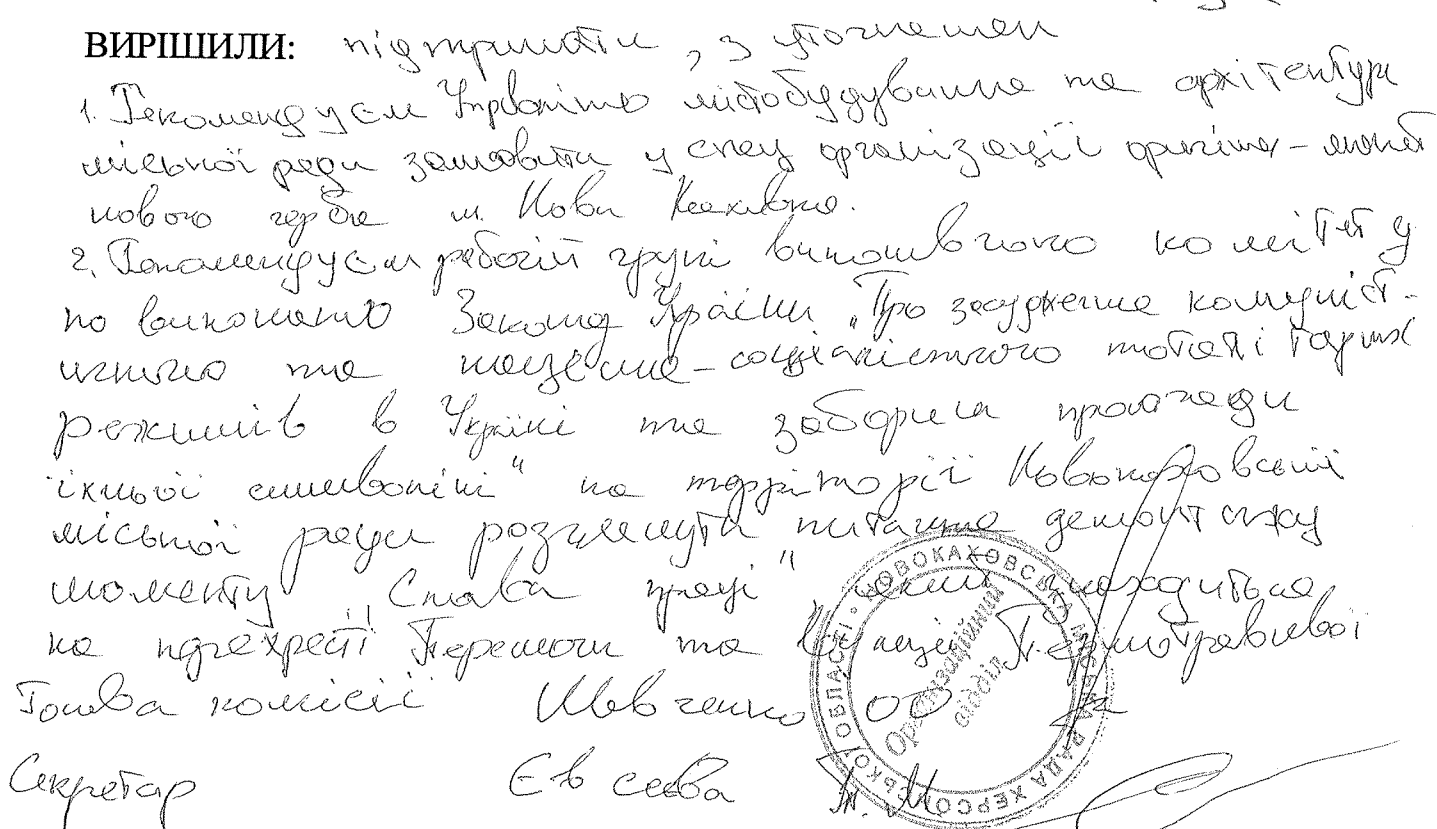 ВИРІШИЛИ: підтримати, з уточненням
1. Рекомендуєм Управлінню містобудування та архітектури
міської ради замовити у спец організації оригінал-макет
нового герба м. Нова Каховка.
2. Рекомендуєм робочій групі виконавчого комітету
по виконанню Закону України „Про засудження комуніст-
ичного та націонал-соціалістичного тоталітарних
режимів в Україні та заборона пропаганди
їхньої символіки" на території Новокаховської
міської ради розглянути питання демонтажу
монументу „Слава праці", який знаходиться
на перехресті Перемоги та вулиці Першотравневої
Голова комісії Шевченко ОО
Секретар Євсеєва Т. М.
НОВОКАХОВСЬКА МІСЬКА РАДА ХЕРСОНСЬКОЇ ОБЛАСТІ
Організаційний
відділ